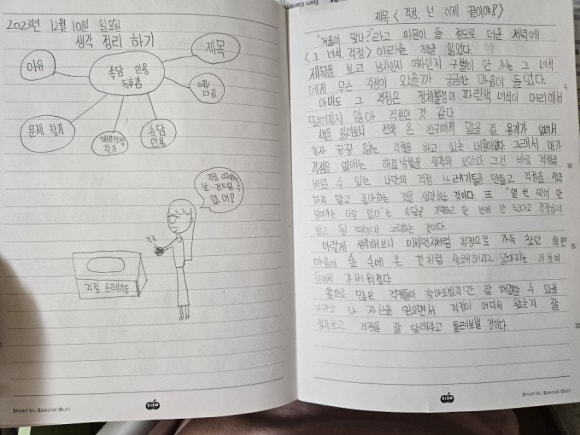 2023년 12월 10일 일요일
생각 정리 하기
제목
이유
속담 인용
독후감
느낌
다짐
문제 찾기
해결방법
찾기
속담
인용
걱정 쓰레기통
Smart In, Special Out!
제목 < 걱정, 넌 이제 끝이야!? >
"겨울이 맞나?" 라고 의문이 들 정도로 더운 저녁에
< 그 녀석, 걱정 > 이라는 책을 읽었다.
제목을 보고 남자인지 여자인지 구별이 안 가는 그 녀석
에게 무슨 걱정이 있을까 궁금한 마음이 들었다.
아마도 그 걱정은 정체불명의 파란색 녀석이 머리에서
떨어지지 않아 걱정인 것 같다.
책을 읽어보니 전학 온 친구에게 말을 걸 용기가 없어서
혼자 끙끙 앓는 걱정을 하고 있는 내용이었다. 그래서 내가
걱정을 없애는 해결방법을 생각해 보았다. 그건 바로 걱정을
버릴 수 있는 나만의 걱정 쓰레기통을 만들고 걱정을 생각
하지 말고 좋아하는 것을 생각하는 것이다. 또 "열 번 찍어 안
넘어가는 나무 없다" 는 속담을 기억하고 한 번에 안 된다고 걱정하지
말고 될 때까지 노력하는 것이다.
이렇게 생각해보니 미세먼지처럼 걱정으로 가득 찼던
마음이 숲 속에 온 것처럼 상쾌해지고 맑아지는 기분이
들어서 가벼워졌다.
앞으로 많은 걱정들이 찾아오겠지만 잘 해결할 수 있을
거라고 나 자신을 믿으면서 걱정이 어디서 왔는지 잘
살펴보고 걱정을 잘 달래주고 돌려보낼 것이다.
Smart In, Special Out!